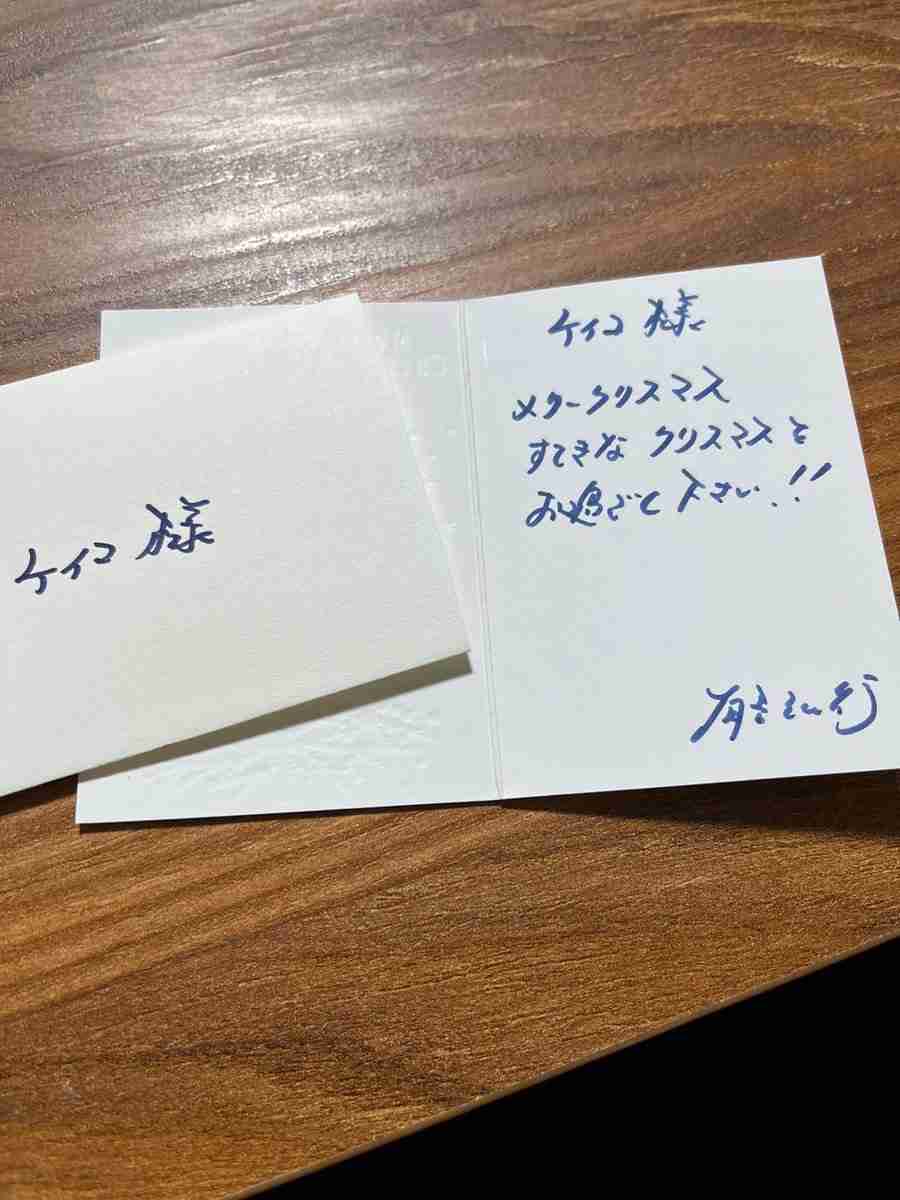 ケイコ 様
ケイコ 様
メリークリスマス
すてきな クリスマスを
お過ごし下さい!!